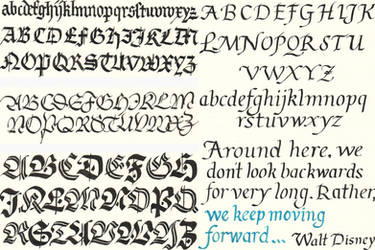 abcdefghijklmnopqrsſtuvwxyz
ABCDEFGHIJKLM
NOPQRSTUVWXYZ
ABCDEFGHIJKLM
NOPQRSTUVWXYZ
ABCDEFGH
IJKLMNOPQ
RSTUVWXYZ
ABCDEFGHIJK
LMNOPQRSTU
VWXYZ
abcdefghijklmnopq
rstuvwxyz
Around here, we
don't look backwards
for very long. Rather,
we keep moving
forward... Walt Disney